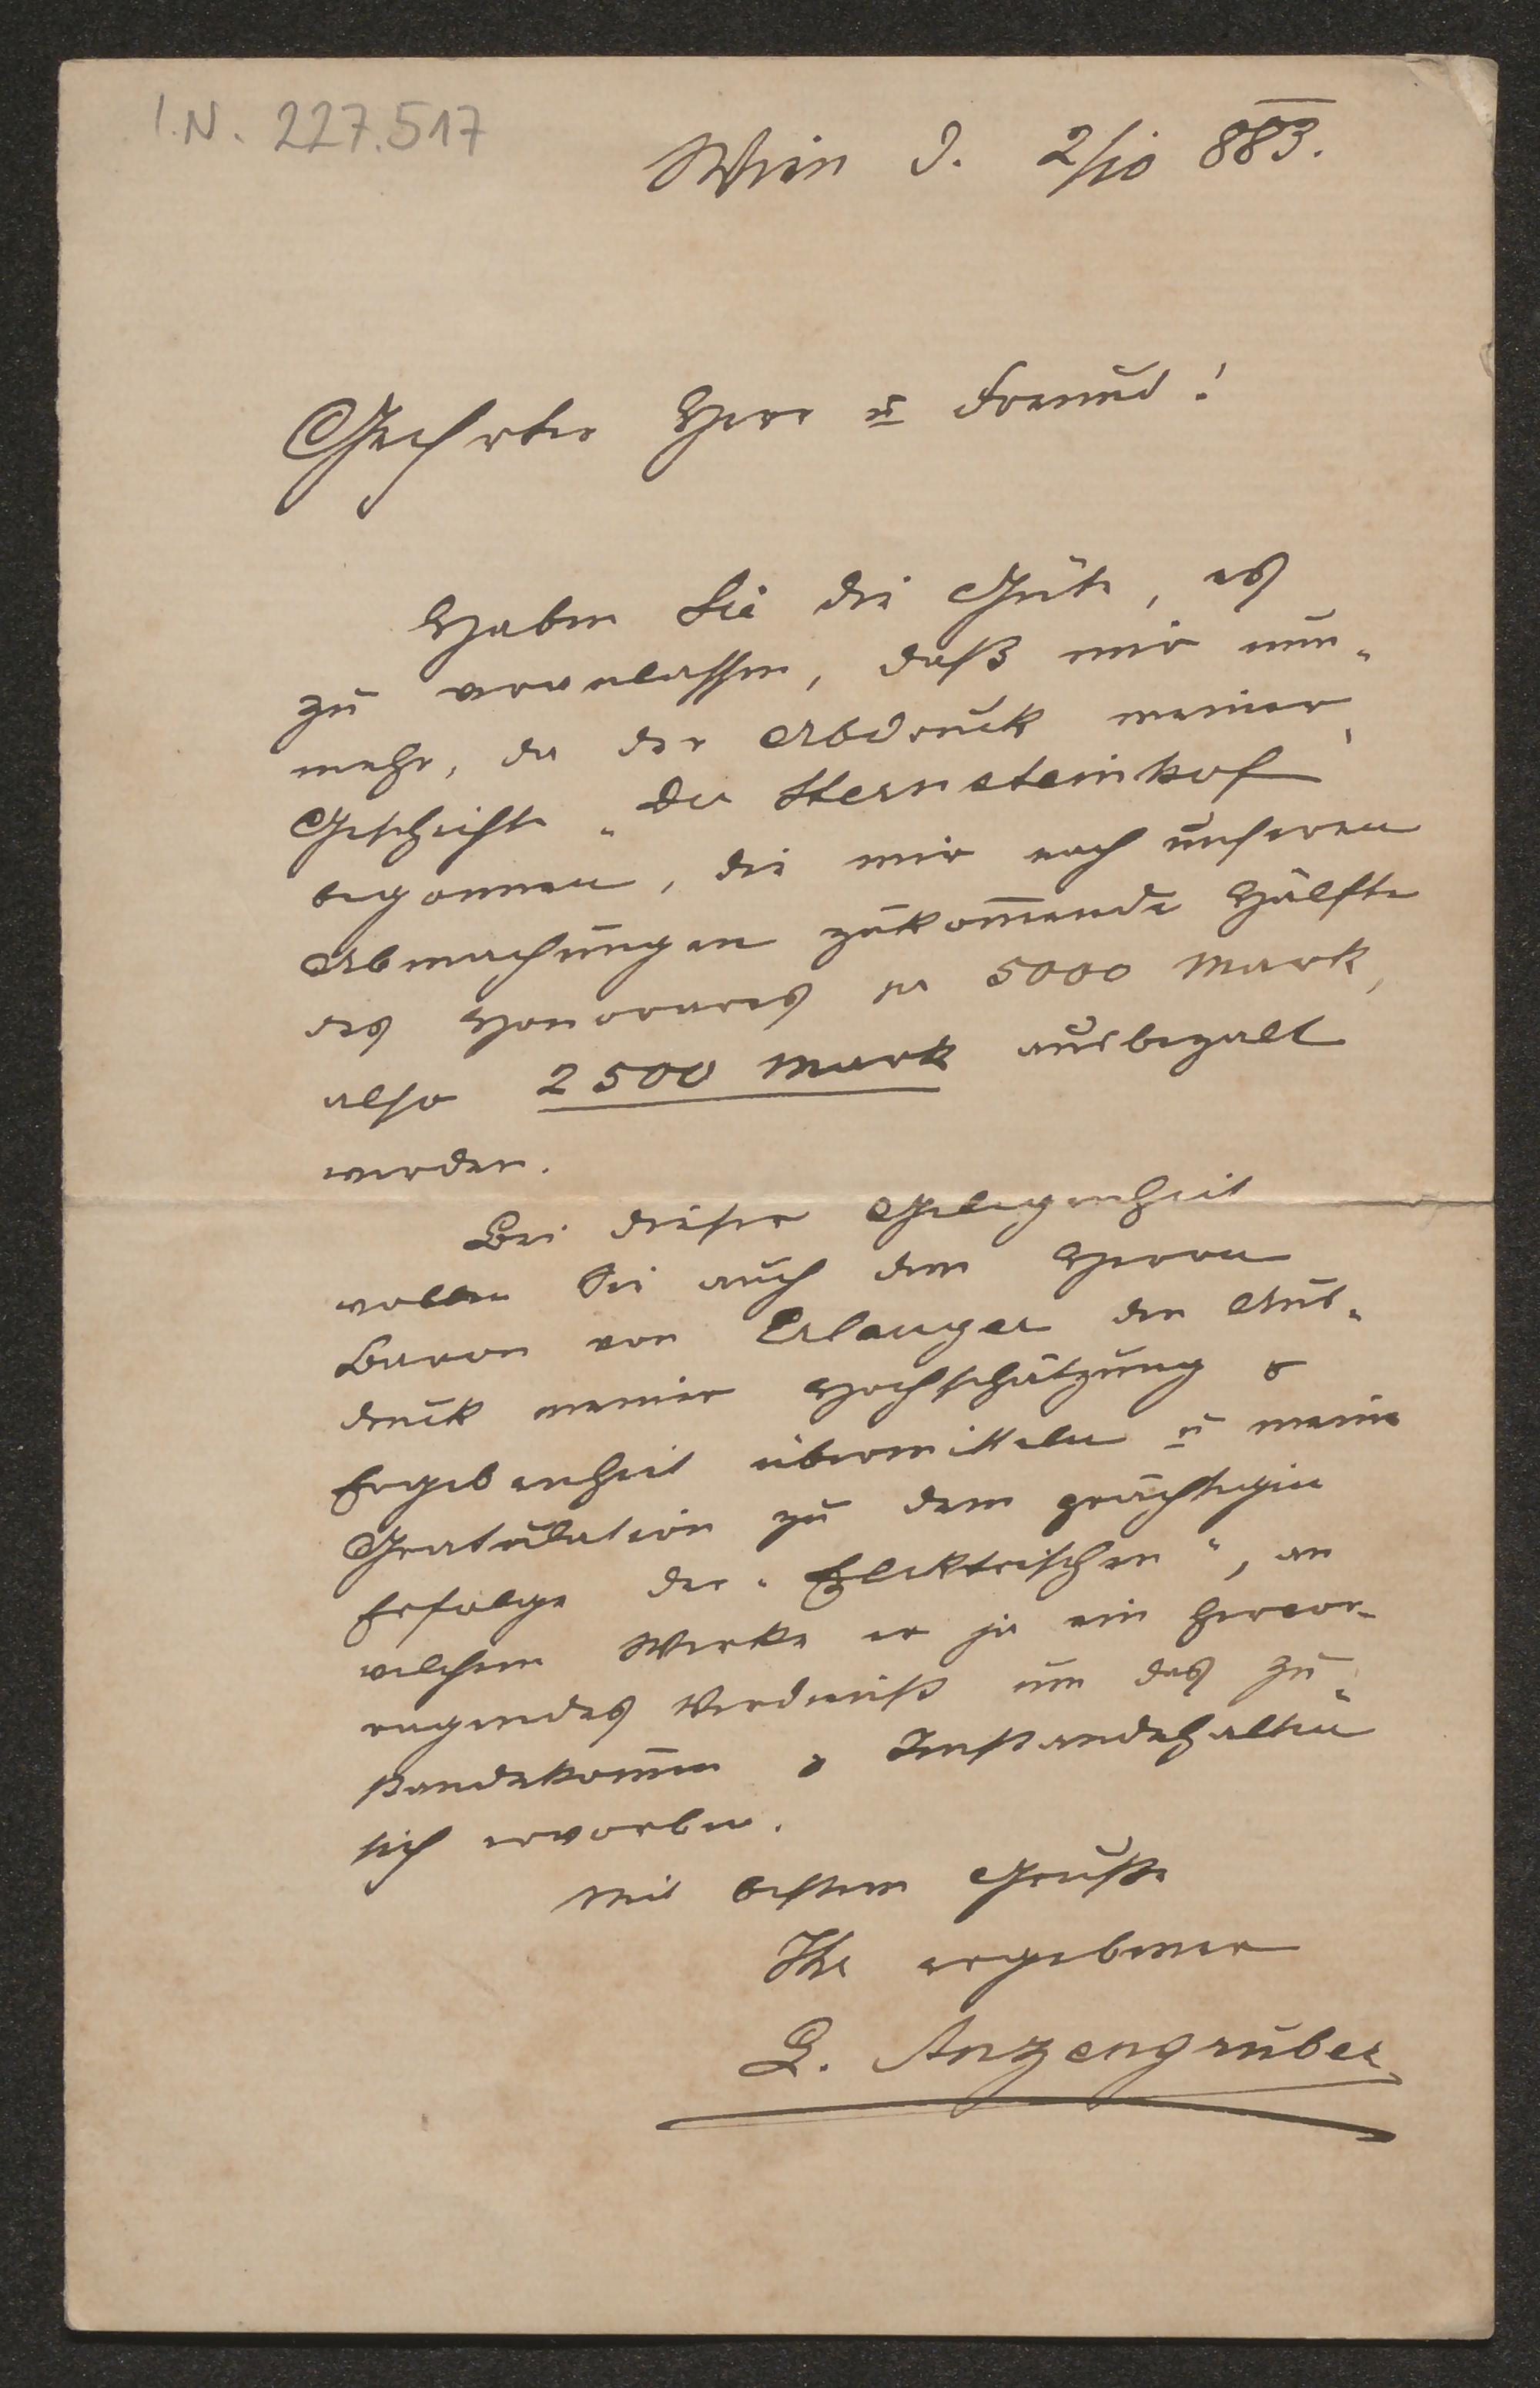 I.N. 227.517
Wien d. 2/10 883.
Geehrter Herr u Freund!
Haben Sie die Güte, es
zu veranlassen, daß mir nun-
mehr, da der Abdruck meiner
Geschichte „Der Sternsteinhof“
begonnen, die mir nach unseren
Abmachungen zukom̄ende Hälfte
des Honorares pr 5000 Mark,
also 2500 Mark ausbezalt
werden.
Bei dieser Gelegenheit
wollen Sie auch dem Herrn
Baron von Erlanger den Aus-
druck meiner Hochschätzung &
Ergebenheit übermitteln u meine
Gratulation zu dem prächtigen
Erfolge der „Elektrischen“, an
welchem Werke er ja ein hervor-
ragendes Verdienst um das Zu-
standekom̄en & Imstandehalten
sich erworben.
Mit bestem Gruße
Ihr ergebener
L. Anzengruber